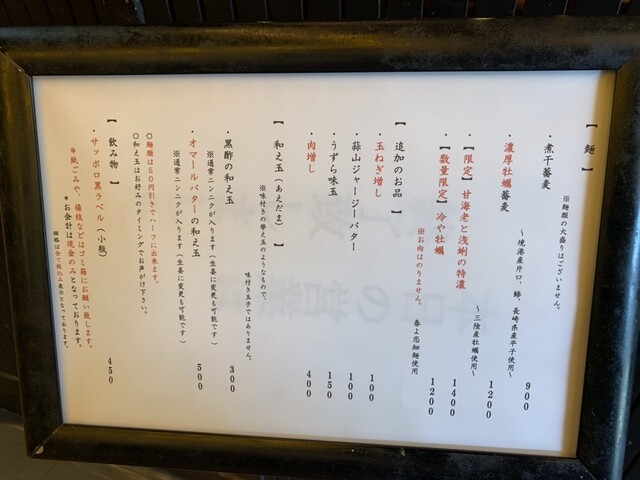 【 麺 】
※麺類の大盛りはございません。
・煮干蕎麦 900
～境港産片口、鯵、長崎県産平子使用～
・濃厚牡蠣蕎麦 1200
～三陸産牡蠣使用～
・【限定】甘海老と浅蜊の特濃 1400
・【数量限定】冷や牡蠣 1200
※お肉はのりません。 春よ恋細麺使用
【 追加のお品 】
・玉ねぎ増し 100
・蒜山ジャージーバター 100
・うずら味玉 150
・肉増し 400
【 和え玉（あえだま） 】
※味付きの替え玉のようなもので、
味付き玉子ではありません。
・黒酢の和え玉 300
※通常ニンニクが入ります（生姜に変更も可能です）
・オマールバターの和え玉 500
※通常ニンニクが入ります（生姜に変更も可能です）
〇麺類は50円引きでハーフに出来ます。
〇和え玉はお好みのタイミングでお声がけ下さい。
【 飲み物 】
・サッポロ黒ラベル（小瓶） 450
＊紙ごみや、楊枝などはゴミ箱にお願い致します。
＊お会計は現金のみとなっております。
価格は全て税込み表示となっております。